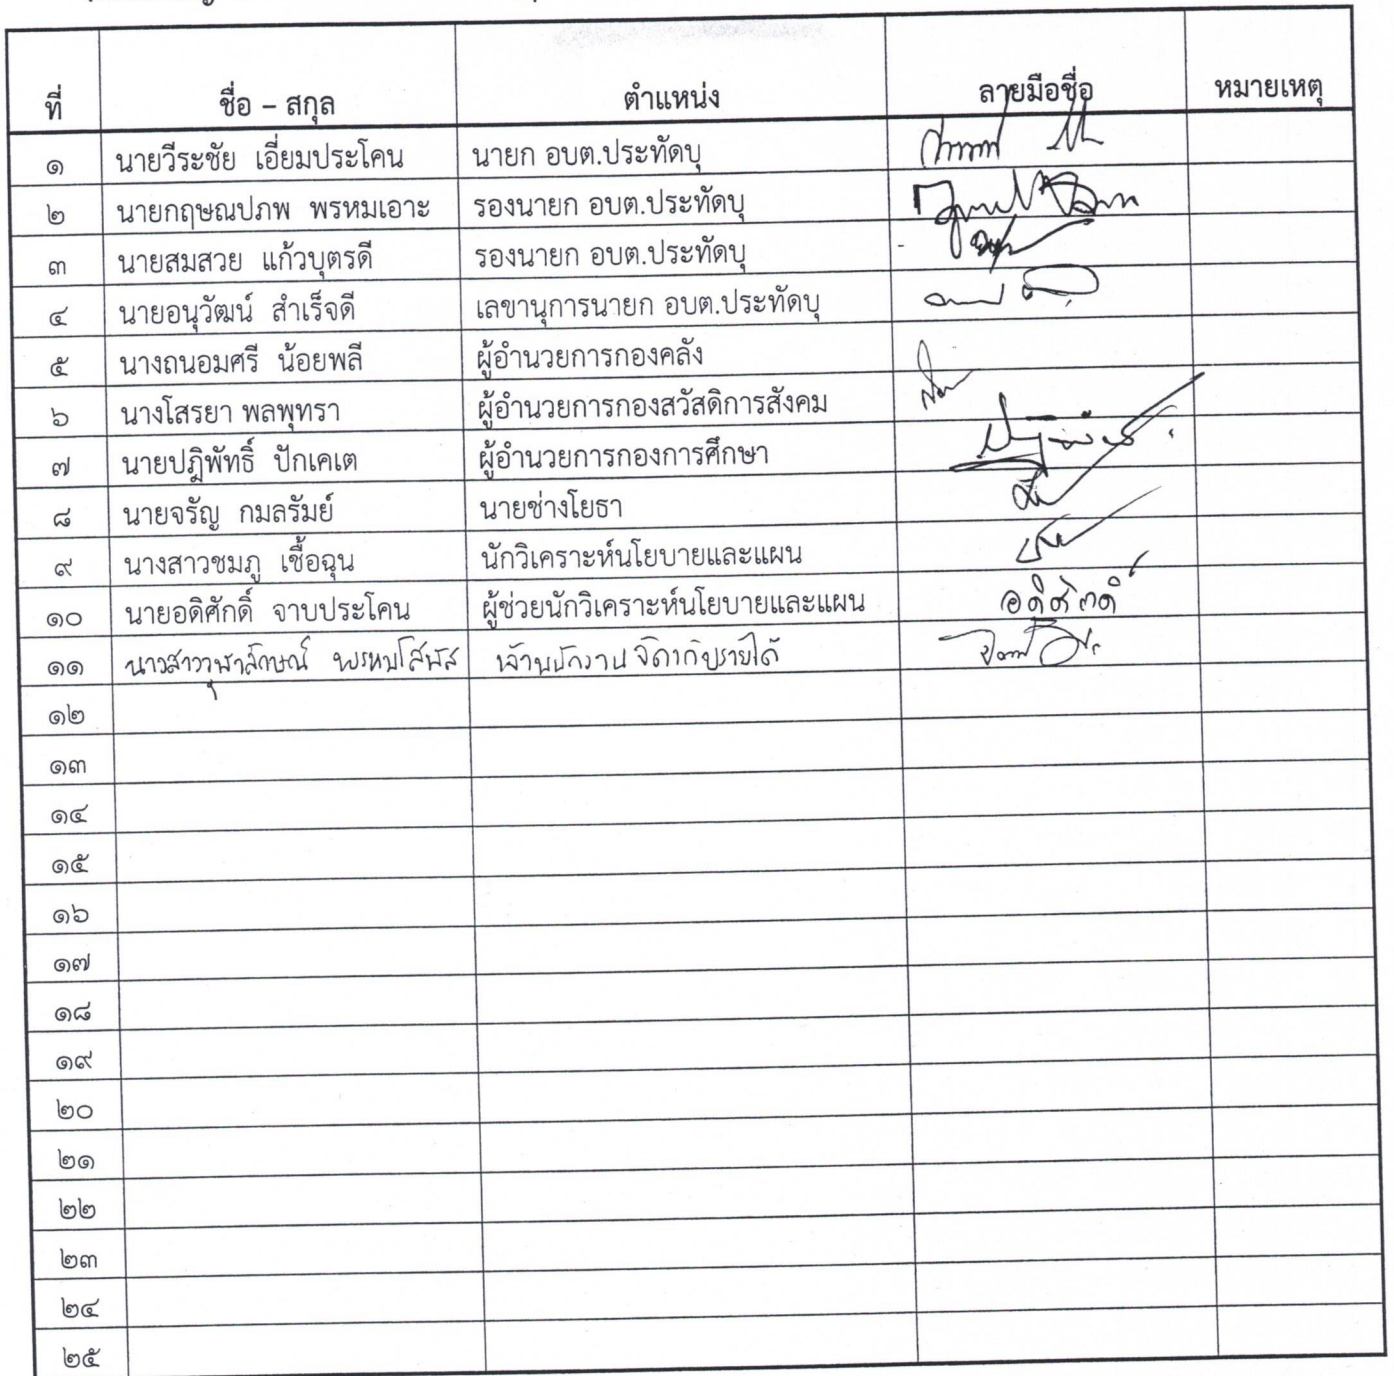 ที่ ชื่อ – สกุล ตำแหน่ง ลายมือชื่อ หมายเหตุ
๑ นายวีระชัย เอี่ยมประโคน นายก อบต.ประทัดบุ
๒ นายกฤษณปภพ พรหมเอาะ รองนายก อบต.ประทัดบุ
๓ นายสมสวย แก้วบุตรดี รองนายก อบต.ประทัดบุ
๔ นายอนุวัฒน์ สำเร็จดี เลขานุการนายก อบต.ประทัดบุ
๕ นางถนอมศรี น้อยพลี ผู้อำนวยการกองคลัง
๖ นางโสรยา พลพุทรา ผู้อำนวยการกองสวัสดิการสังคม
๗ นายปฎิพัทธิ์ ปักเคเต ผู้อำนวยการกองการศึกษา
๘ นายจรัญ กมลรัมย์ นายช่างโยธา
๙ นางสาวชมภู เชื้อฉุน นักวิเคราะห์นโยบายและแผน
๑๐ นายอดิศักดิ์ จาบประโคน ผู้ช่วยนักวิเคราะห์นโยบายและแผน อดิศักดิ์
๑๑ นางสาวจุฬาลักษณ์ พรหมโสพัส เจ้าพนักงานจัดเก็บรายได้
๑๒
๑๓
๑๔
๑๕
๑๖
๑๗
๑๘
๑๙
๒๐
๒๑
๒๒
๒๓
๒๔
๒๕